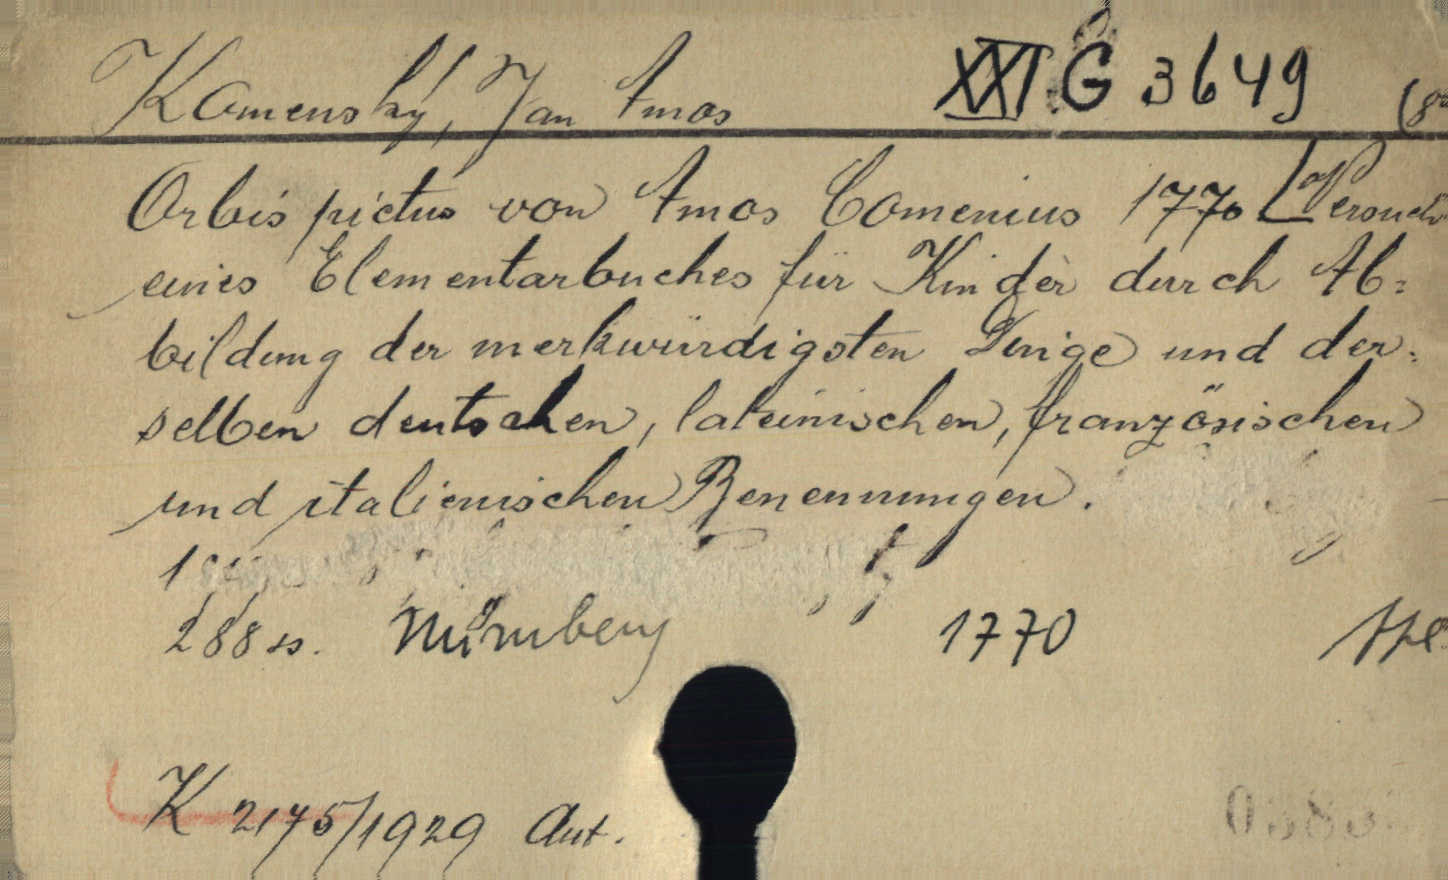 Komenský, Jan Amos XXI G 3649
Orbis pictus von Amos Comenius 1770
eines Elementarbuches für Kinder durch Ab=
bildung der merkwürdigsten Dinge und der=
selben deutschen, lateinischen, französischen
und italienischen Benennungen.
288 ss. Nürnberg 1770
K 2175/1929 Aut.